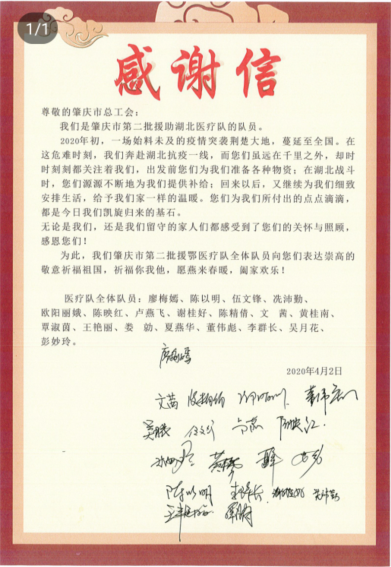 1/1
感谢信
尊敬的肇庆市总工会:
我们是肇庆市第二批援助湖北医疗队的队员。
2020年初,一场始料未及的疫情突袭荆楚大地,蔓延至全国。在
这危难时刻,我们奔赴湖北抗疫一线,而您们虽远在千里之外,却时
时刻刻都关注着我们,出发前您们为我们准备各种物资;在湖北战斗
时,您们源源不断地为我们提供补给;回来以后,又继续为我们细致
安排生活,给予我们家一样的温暖。您们为我们所付出的点点滴滴,
都是今日我们凯旋归来的基石。
无论是我们,还是我们留守的家人们都感受到了您们的关怀与照顾,
感恩您们!
为此,我们肇庆市第二批援鄂医疗队全体队员向您们表达崇高的
敬意祈福祖国,祈福你我他,愿燕来春暖,阖家欢乐!
医疗队全体队员:廖梅嫣、陈以明、伍文锋、冼沛勤、
欧阳丽娥、陈映红、卢燕飞、谢桂好、陈精倩、文 茜、黄桂南、
覃淑茵、王艳丽、娄 勍、夏燕华、董伟彪、李群长、吴月花、
彭妙玲。
2020年4月2日
文茜
陈以明